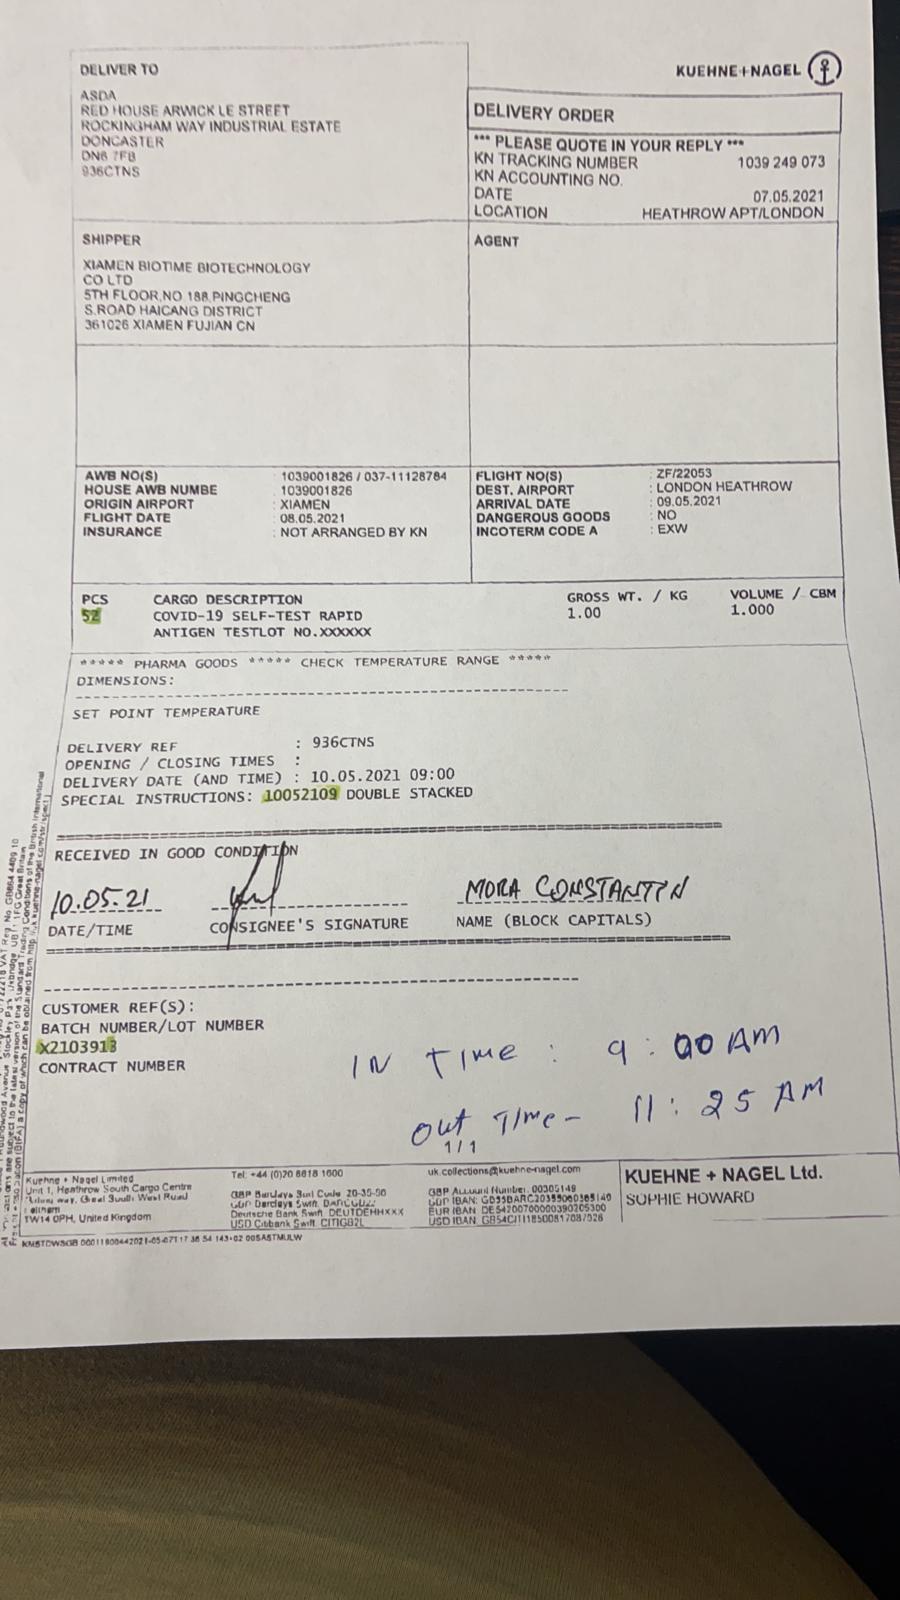 DELIVER TO
ASDA
RED HOUSE ARWICK LE STREET
ROCKINGHAM WAY INDUSTRIAL ESTATE
DONCASTER
DN6 7FB
936CTNS
KUEHNE+NAGEL
DELIVERY ORDER
*** PLEASE QUOTE IN YOUR REPLY ***
KN TRACKING NUMBER 1039 249 073
KN ACCOUNTING NO.
DATE 07.05.2021
LOCATION HEATHROW APT/LONDON
SHIPPER
XIAMEN BIOTIME BIOTECHNOLOGY
CO LTD
5TH FLOOR,NO 188,PINGCHENG
S.ROAD HAICANG DISTRICT
361026 XIAMEN FUJIAN CN
AGENT
AWB NO(S) : 1039001826 / 037-11128784
HOUSE AWB NUMBE : 1039001826
ORIGIN AIRPORT : XIAMEN
FLIGHT DATE : 08.05.2021
INSURANCE : NOT ARRANGED BY KN
FLIGHT NO(S) : ZF/22053
DEST. AIRPORT : LONDON HEATHROW
ARRIVAL DATE : 09.05.2021
DANGEROUS GOODS : NO
INCOTERM CODE A : EXW
PCS CARGO DESCRIPTION GROSS WT. / KG VOLUME / CBM
52 COVID-19 SELF-TEST RAPID 1.00 1.000
ANTIGEN TESTLOT NO.XXXXXX
***** PHARMA GOODS ***** CHECK TEMPERATURE RANGE *****
DIMENSIONS:
SET POINT TEMPERATURE
DELIVERY REF : 936CTNS
OPENING / CLOSING TIMES :
DELIVERY DATE (AND TIME) : 10.05.2021 09:00
SPECIAL INSTRUCTIONS: 10052109 DOUBLE STACKED
RECEIVED IN GOOD CONDITION
10.05.21 MORA CONSTANTIN
DATE/TIME CONSIGNEE'S SIGNATURE NAME (BLOCK CAPITALS)
CUSTOMER REF(S):
BATCH NUMBER/LOT NUMBER
X2103913
CONTRACT NUMBER
IN TIME : 9 : 00 AM
OUT TIME - 11 : 25 AM
1/1
Kuehne + Nagel Limited
Unit 1, Heathrow South Cargo Centre
TW14 0PH, United Kingdom
Tel: +44 (0)20 8818 1600
GBP Barclays Sort Code 20-35-90
Deutsche Bank Swift: DEUTDEHHXXX
USD Citibank Swift: CITIGB2L
uk.collections@kuehne-nagel.com
GBP Account Number: 00305149
KUEHNE + NAGEL Ltd.
SOPHIE HOWARD